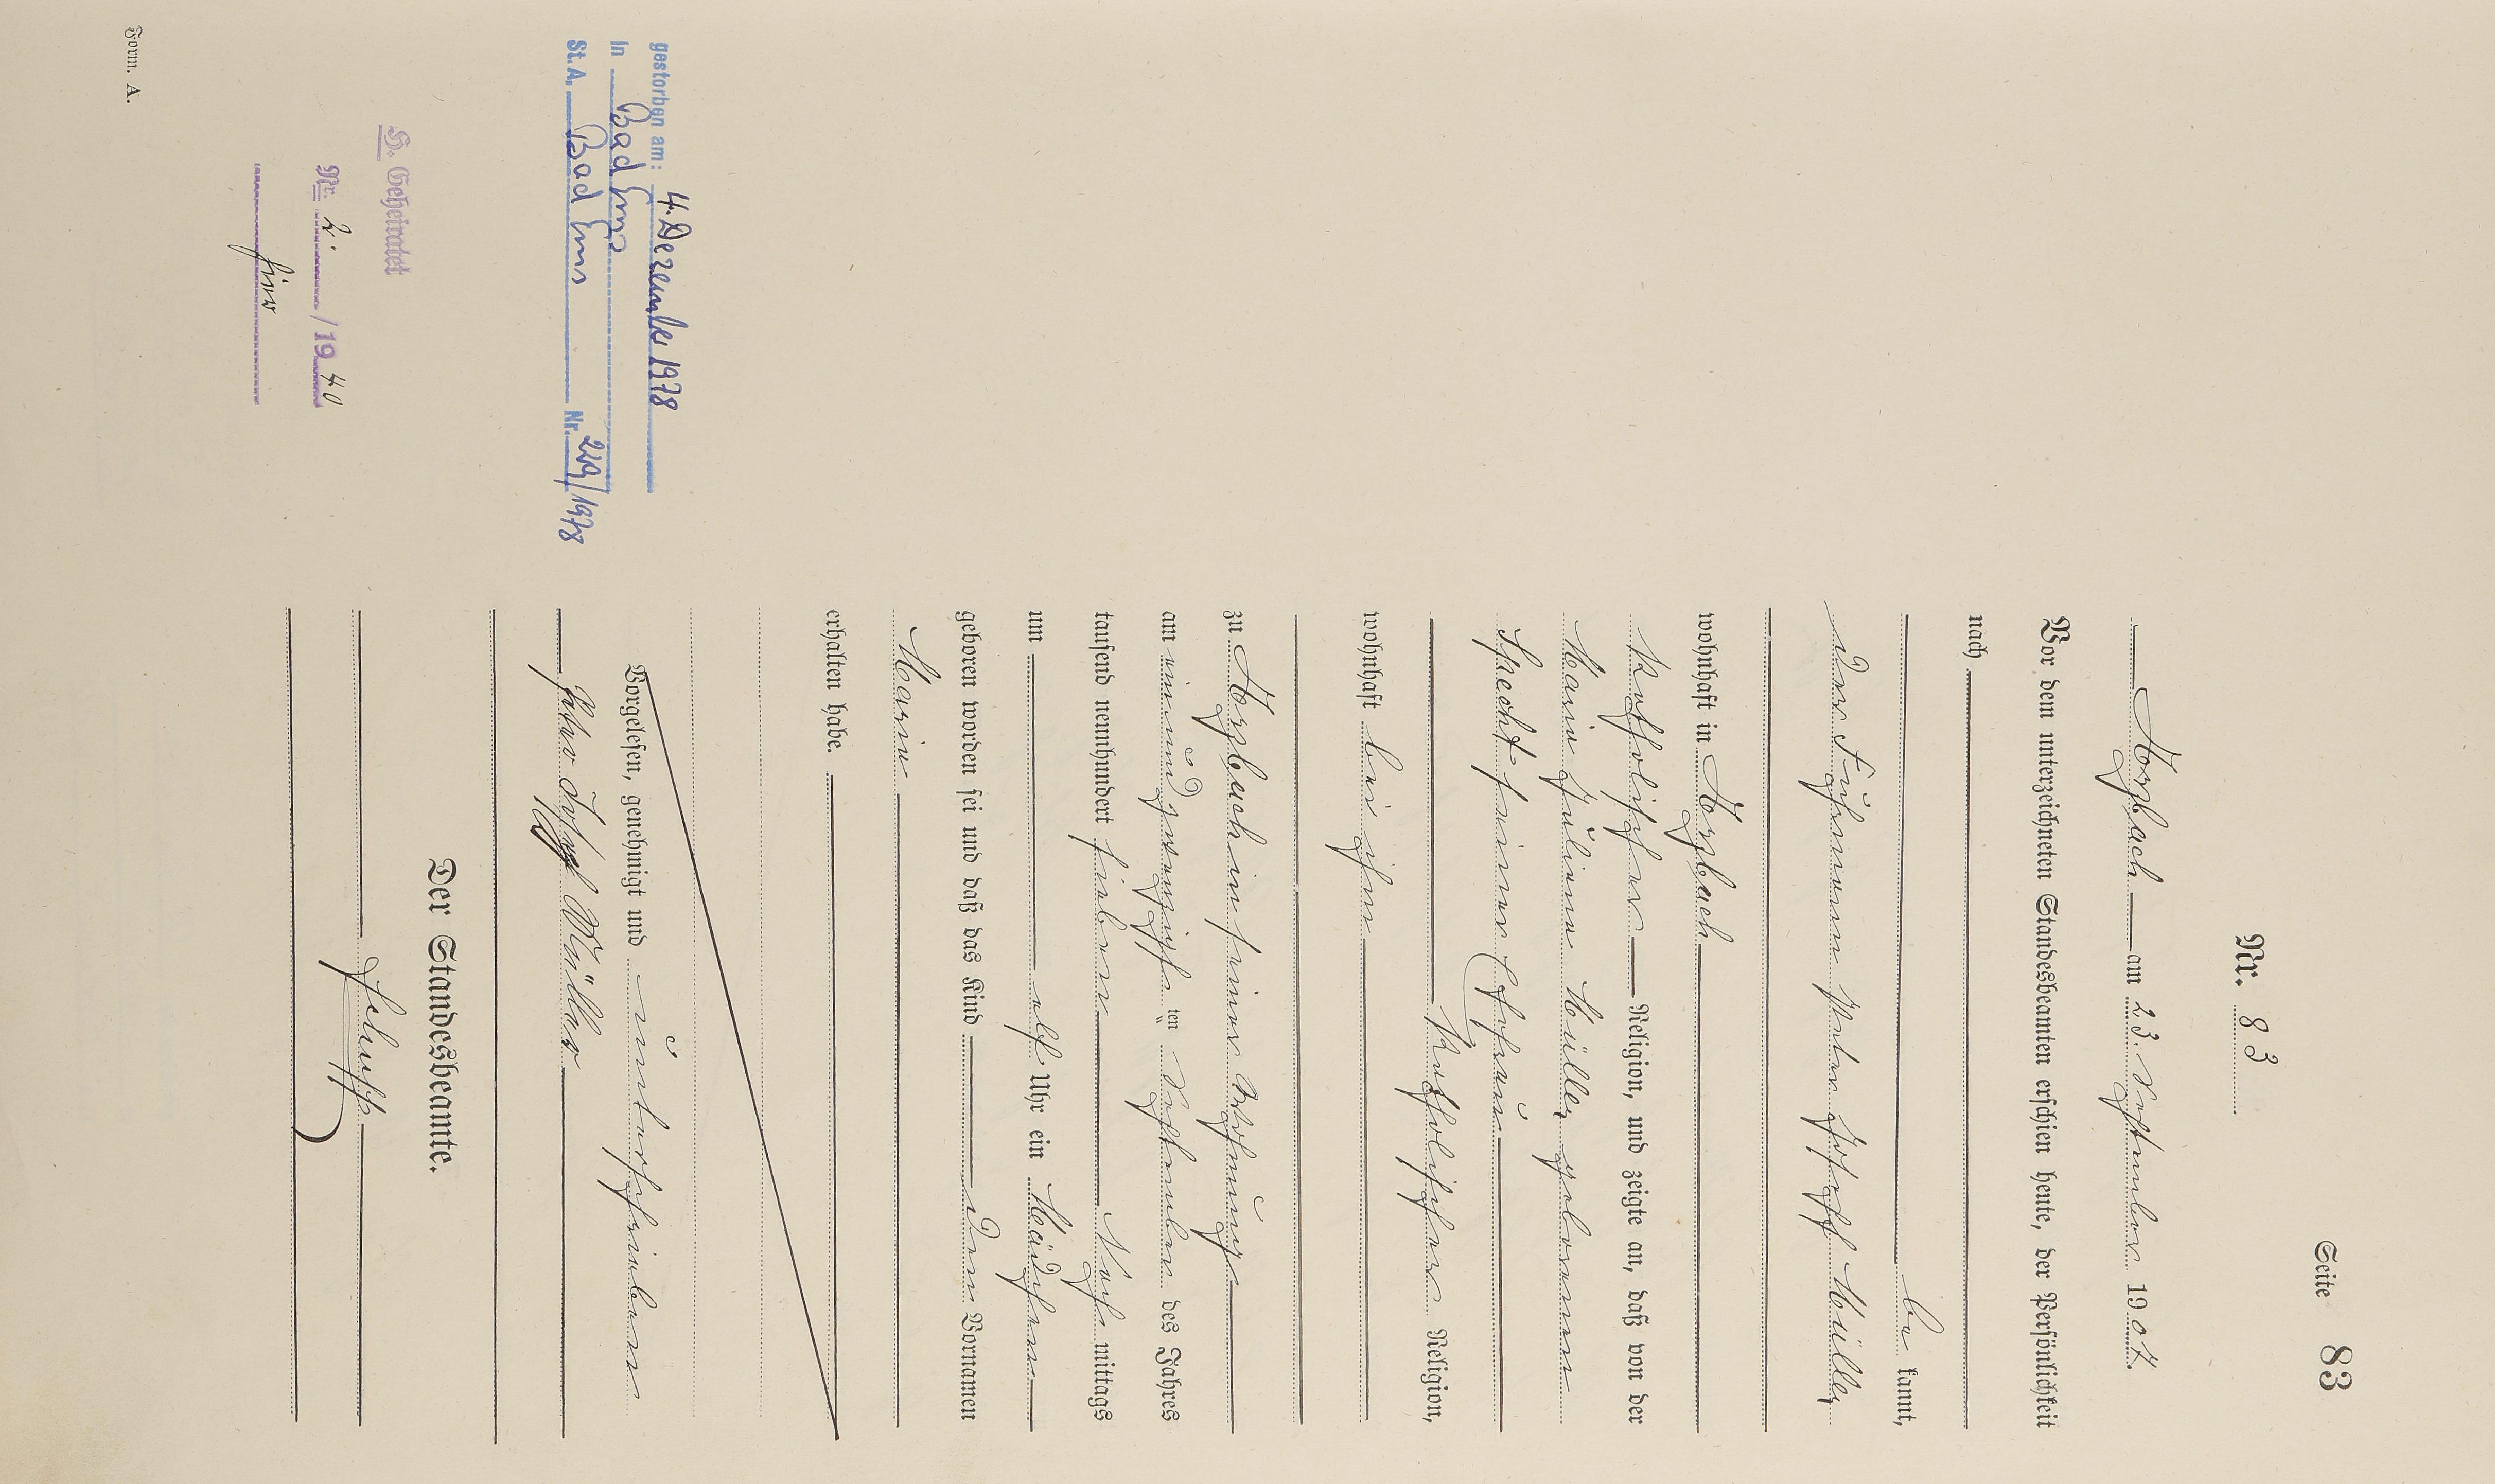 Seite 83
Nr. 83
Arzbach am 23. September 1907.
Vor dem unterzeichneten Standesbeamten erschien heute, der Persönlichkeit
nach
be kannt,
der Fuhrmann Peter Joseph Müller,
wohnhaft in Arzbach
katholischer Religion, und zeigte an, daß von der
Maria Juliana Müller, geborenen
Specht seiner Ehefrau
katholischer Religion,
wohnhaft bei ihm
zu Arzbach in seiner Wohnung
am einundzwanzigsten September des Jahres
tausend neunhundert sieben Nach mittags
um elf Uhr ein Mädchen
geboren worden sei und daß das Kind den Vornamen
Maria
erhalten habe.
Vorgelesen, genehmigt und unterschrieben
Peter Josef Müller
Der Standesbeamte.
gestorben am: 4. Dezember 1978
in Bad Ems
St. A. Bad Ems Nr. 219/1978
Geheiratet
Nr. 2. /1940
hier
Form. A.